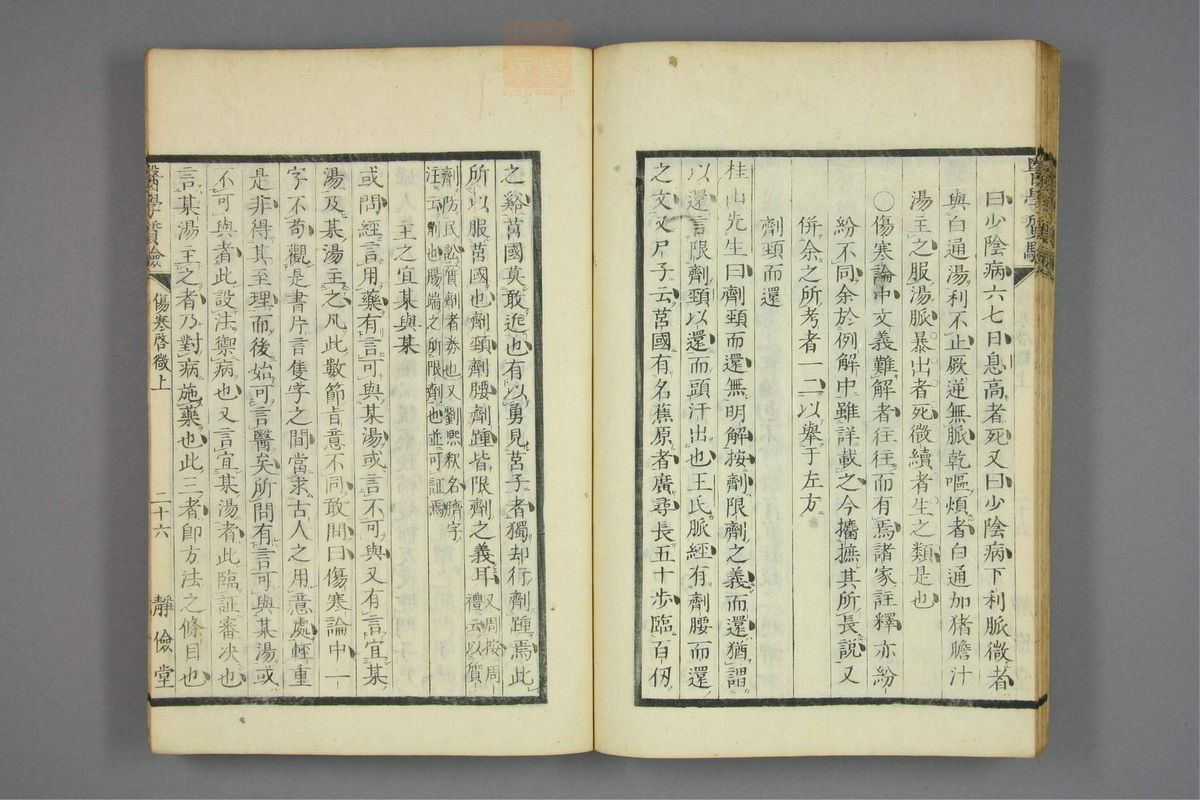 曰少陰病六七日息高者死又曰少陰病下利脈微者
與白通湯利不止厥逆無脈乾嘔煩者白通加猪膽汁
湯主之服湯脈暴出者死微續者生之類是也
〇傷寒論中文義難解者往往而有焉諸家註釋亦紛
紛不同余於例解中雖詳載之今攟摭其所長說又
併余之所考者一二以擧于左方
劑頸而還
桂山先生曰劑頸而還無明解按劑限劑之義而還猶謂
以還言限劑頸以還而頭汗出也王氏脈經有劑腰而還
之文又尸子云莒國有名蕉原者廣尋長五十步臨百仞
之谿莒國莫敢近也有以勇見莒子者獨却行劑踵焉此
所以服莒國也劑頸劑腰劑踵皆限劑之義耳又周按周禮云以質
劑防民訟質劑者券也又劉熙釈名臍字
注云劑也腸端之所限劑也並可証焉
主之宜某與某
或問經言用藥有言可與某湯或言不可與又有言宜某
湯及某湯主之凡此數節旨意不同敢問曰傷寒論中一
字不苟觀是書片言隻字之間當求古人之用意處輕重
是非得其至理而後始可言醫矣所問有言可與某湯或
不可與者此設法禦病也又言宜某湯者此臨証審決也
言某湯主之者乃對病施藥也此三者即方法之條目也
醫學質驗
傷寒啓微上
二十六
靜儉堂